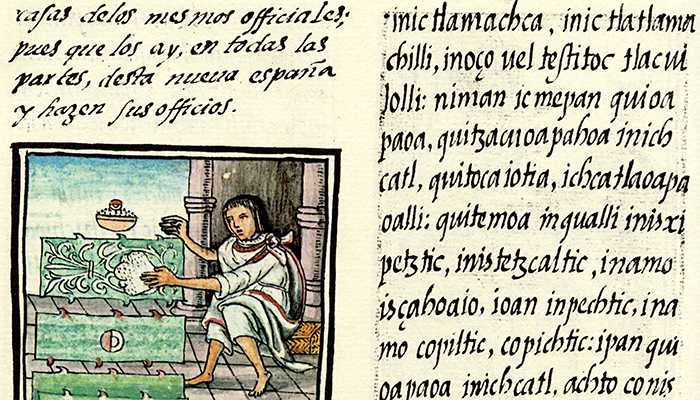 casas delos mesmos officiales;
pues que los ay, en todas las
partes, desta nueua españa
y hazen sus officios.
inic tlamachca, inic tlatlama
chilli, inoço uel teſtitoc tlacui
lolli: niman ic mepan quioa
paoa, quitzacuoapahoa inich
catl, quitocaiotia, ichcatlaoapa
oalli: quitemoa inqualli inisxi
petztic, inistetzcaltic, inamo
isçahoaio, ioan inpechtic, ina
mo copiltic, copichtic: ipan qui
oapaoa inichcatl, achto conis